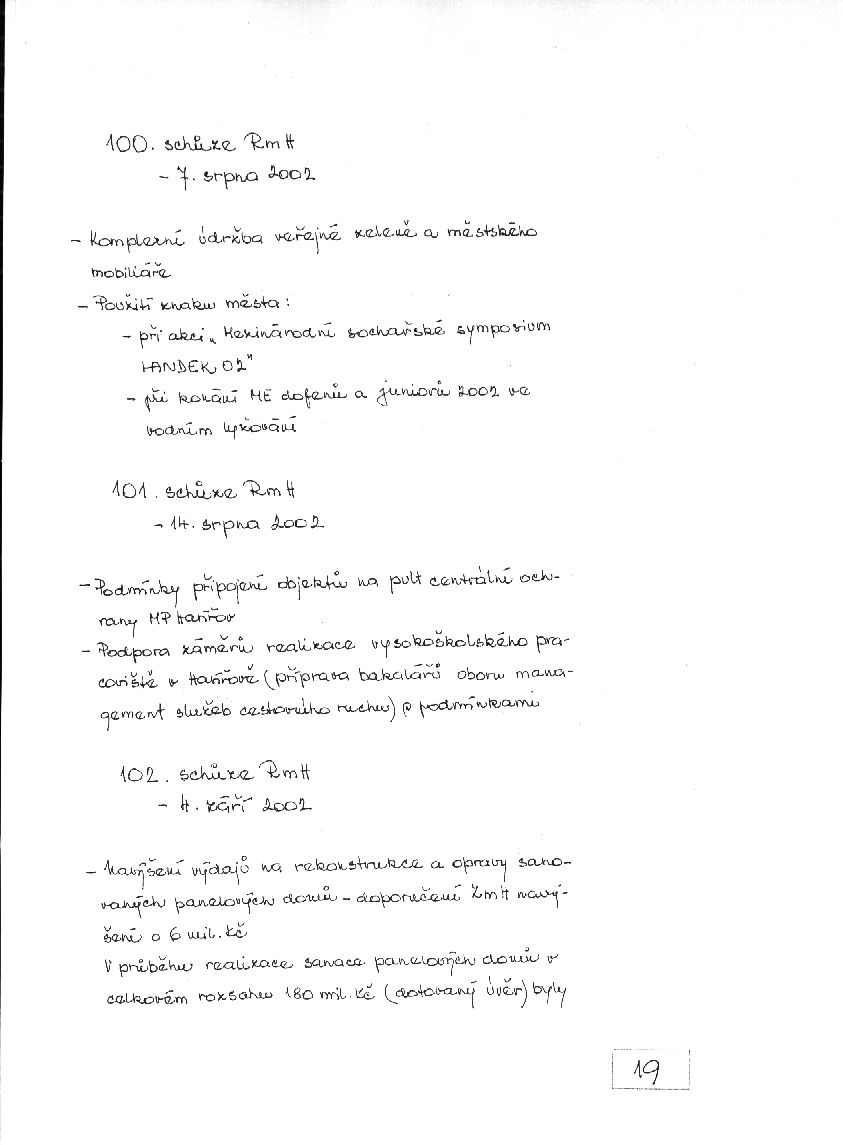 100. schůze RmH
- 7. srpna 2002
- Komplexní údržba veřejné zeleně a městského
mobiliáře
- Použití znaku města:
- při akci „Mezinárodní sochařské symposium
LANDEK 02"
- při konání ME dofenů a juniorů 2002 ve
vodním lyžování
101. schůze RmH
- 14. srpna 2002
- Podmínky připojení objektů na pult centrální och-
rany MP Havířov
- Podpora záměrů realizace vysokoškolského pra-
coviště v Havířově (příprava bakalářů oboru mana-
gement služeb cestovního ruchu) s podmínkami
102. schůze RmH
- 4. září 2002
- Navýšení výdajů na rekonstrukce a opravy sano-
vaných panelových domů - doporučení ZmH navý-
šení o 6 mil. Kč
V průběhu realizace sanace panelových domů v
celkovém rozsahu 180 mil. Kč (dotovaný úvěr) byly
19